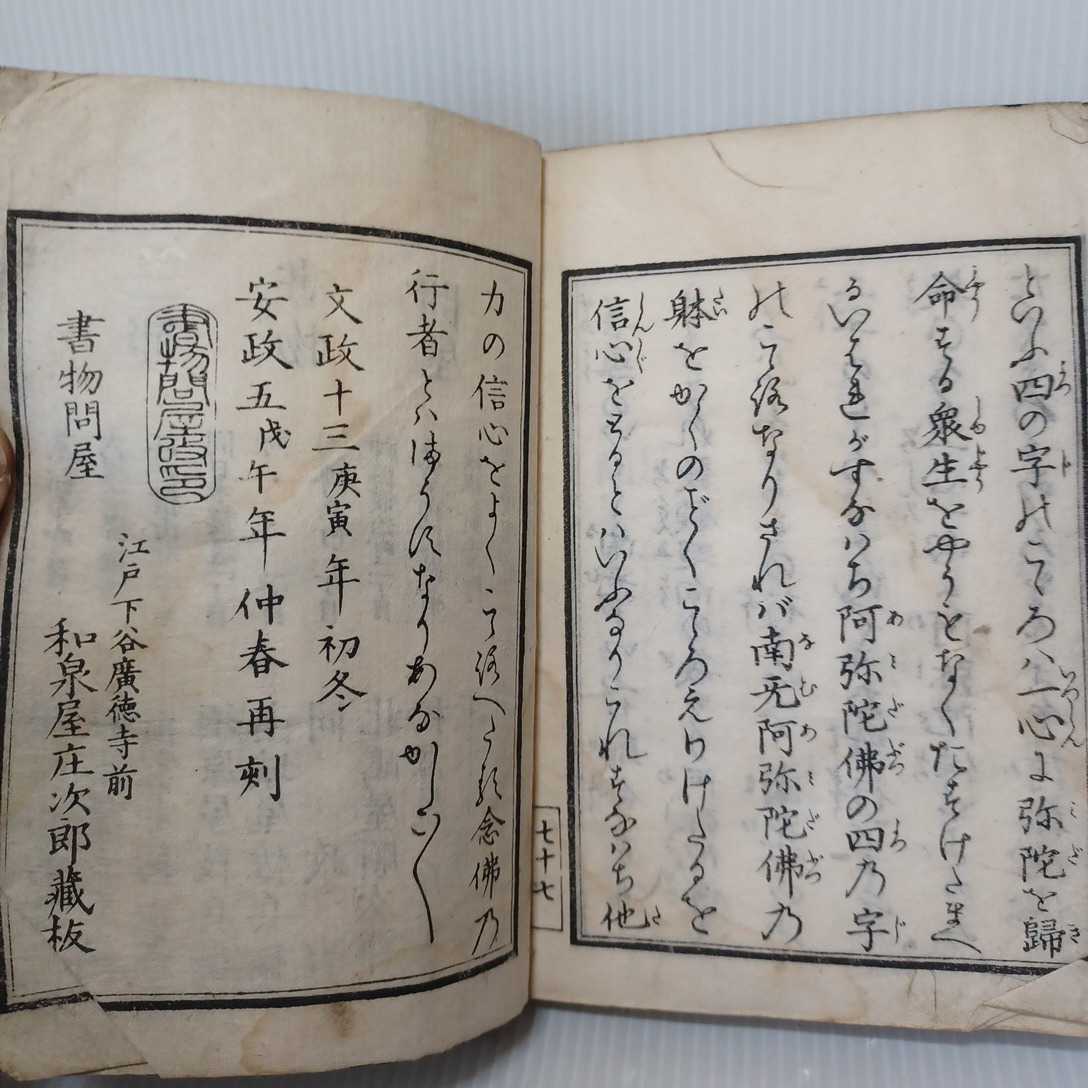 といふ四の字のこゝろハ一心に弥陀を歸
命する衆生をやうもなくたすけたまへ
るいはれがすなハち阿弥陀佛の四乃字
のこゝろなりされバ南无阿弥陀佛乃
躰をかくのごとくこゝろえわけたるを
信心をとるとハいふなりこれすなハち他
七十七
力の信心をよくこゝろえたる念佛乃
行者とハまうすなりあなかしこ〱
文政十三庚寅年初冬
安政五戊午年仲春再刻
書物問屋
江戸下谷廣徳寺前
書物問屋 和泉屋庄次郎藏板